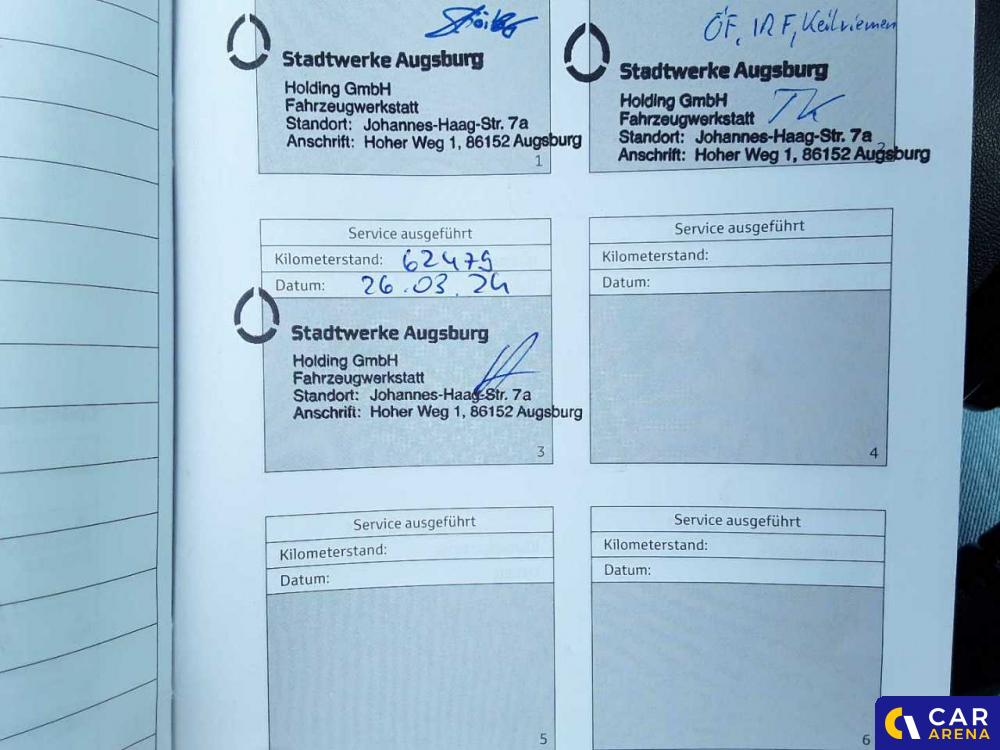 Stadtwerke Augsburg
Holding GmbH
Fahrzeugwerkstatt
Standort: Johannes-Haag-Str. 7a
Anschrift: Hoher Weg 1, 86152 Augsburg
1
ÖF, IRF, Keilriemen
Stadtwerke Augsburg
Holding GmbH
Fahrzeugwerkstatt
TK
Standort: Johannes-Haag-Str. 7a
Anschrift: Hoher Weg 1, 86152 Augsburg
2
Service ausgeführt
Kilometerstand: 62479
Datum: 26.03.24
Stadtwerke Augsburg
Holding GmbH
Fahrzeugwerkstatt
Standort: Johannes-Haag-Str. 7a
Anschrift: Hoher Weg 1, 86152 Augsburg
3
Service ausgeführt
Kilometerstand:
Datum:
4
Service ausgeführt
Kilometerstand:
Datum:
5
Service ausgeführt
Kilometerstand:
Datum:
6
CAR
ARENA